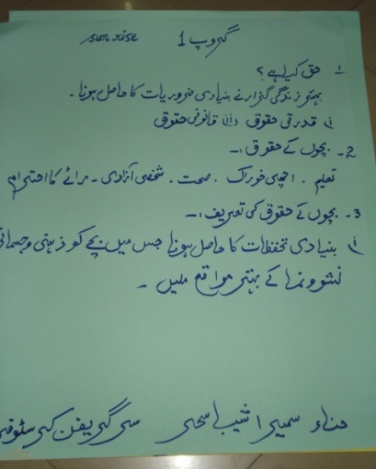 گروپ 1 sun rise
1- حق کیا ہے؟
بہتر زندگی گزارنے بنیادی ضروریات کا حاصل ہونا۔
(i) قدرتی حقوق (ii) قانونی حقوق
2- بچوں کے حقوق :-
تعلیم ۔ اچھی خوراک ۔ صحت ۔ شخصی آزادی ۔ رائے کا احترام
3- بچوں کے حقوق کی تعریف :-
(i) بنیادی تحفظات کا حاصل ہونا جس میں بچے کو ذہنی و جسمانی
نشوونما کے بہتر مواقع ملیں ۔
حناء سمیرا شیبا سحر